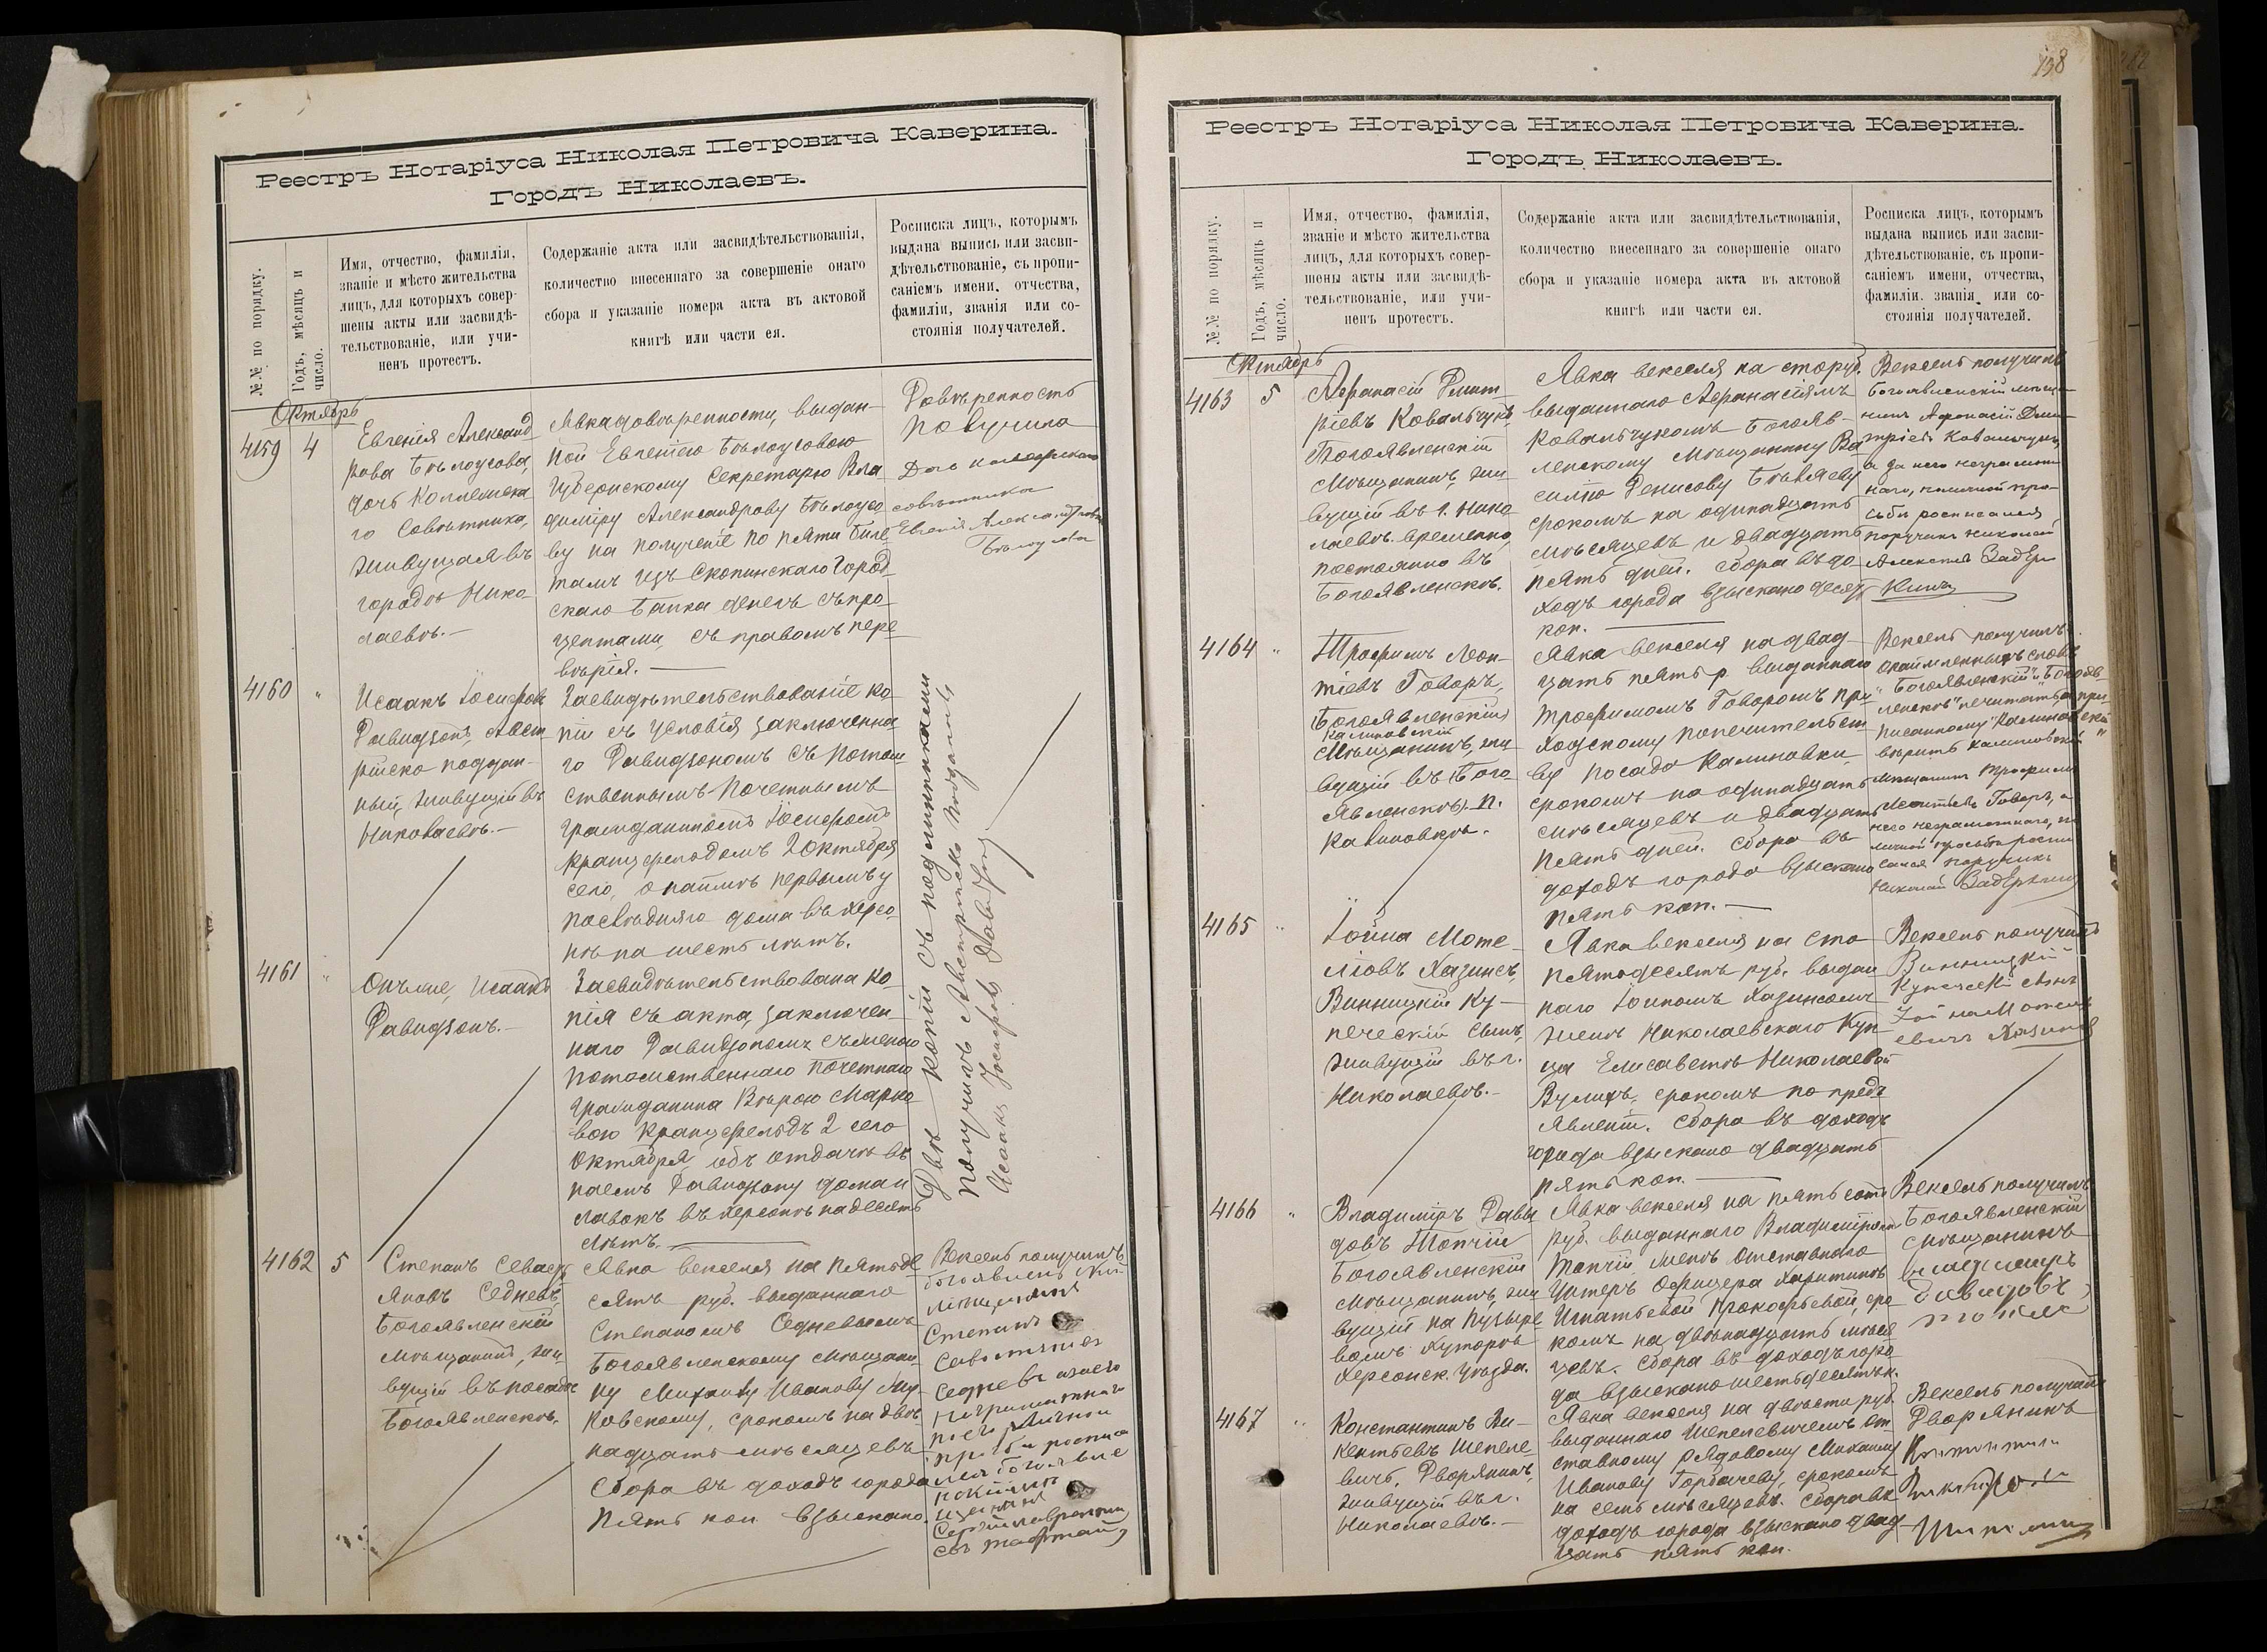 Реестръ Нотаріуса Николая Петровича Каверина.
Городъ Николаевъ.
№№ по порядку.
Годъ, мѣсяцъ и
число.
Имя, отчество, фамилія,
званіе и мѣсто жительства
лицъ, для которыхъ совер-
шены акты или засвидѣ-
тельствованіе, или учи-
ненъ протестъ.
Содержаніе акта или засвидѣтельствованія,
количество внесеннаго за совершеніе онаго
сбора и указаніе номера акта въ актовой
книгѣ или части ея.
Росписка лицъ, которымъ
выдана выпись или засви-
дѣтельствованіе, съ пропи-
саніемъ имени, отчества,
фамиліи, званія или со-
стоянія получателей.
Октябрь
4159
4
Евгенія Александ
рова Бѣлоусова,
дочь Коллежска
го Совѣтника,
живущая въ
городѣ Нико-
лаевѣ.—
Явка довѣренности, выдан-
ной Евгеніею Бѣлоусовою
Губернскому Секретарю Вла
диміру Александрову Бѣлоусо
ву на полученіе по пяти биле
тамъ изъ Скопинскаго Город
скаго банка денегъ съ про
центами, съ правомъ пере
вѣрія.
Довѣренность
получила
совѣтника
Евгенія Александрова
Бѣлоусова
4160
"
Исаакъ Іосифовъ
Давидзонъ, Авст
рійско поддан-
ный, живущій въ
Николаевѣ.—
Засвидѣтельствованіе ко
піи съ условія заключенна
го Давидзономъ съ потом
ственнымъ Почетнымъ
гражданиномъ Іосифомъ
Кранцфельдомъ 2 Октября
сего, о наймѣ первымъ у
послѣдняго дома въ Херсо
нѣ на шесть лѣтъ.
4161
"
Онъ же, Исаакъ
Давидзонъ.—
Засвидѣтельствована ко
пія съ акта, заключен
наго Давидзономъ съ женою
потомственнаго почетнаго
гражданина Вѣрою Марко
вою Кранцфельдъ 2 сего
Октября, объ отдачѣ въ
наемъ Давидзону дома и
лавокъ въ Херсонѣ на десять
лѣтъ.
Двѣ копіи съ подлинниками
получилъ Австрійско подданный
Исаакъ Іосифовъ Давидзонъ
4162
5
Степанъ Севасть
яновъ Седневъ,
Богоявленскій
мѣщанинъ, жи
вущій въ посадѣ
Богоявленскѣ.
Явка векселя на пятьде
сятъ руб. выданнаго
Степаномъ Седневымъ
Богоявленскому мѣщани
ну Михаилу Иванову
ковскому, срокомъ на двѣ
надцать мѣсяцевъ
Сбора въ доходъ города
пять коп. взыскано.
Вексель получилъ
мѣщанинъ
Степанъ
Севастьяновъ
Седневъ а за него
неграмотнаго
по его личной
прозьбѣ росписа
лся Богоявле
нскій мѣ
щанинъ
Реестръ Нотаріуса Николая Петровича Каверина.
Городъ Николаевъ.
№№ по порядку.
Годъ, мѣсяцъ и
число.
Имя, отчество, фамилія,
званіе и мѣсто жительства
лицъ, для которыхъ совер-
шены акты или засвидѣ-
тельствованіе, или учи-
ненъ протестъ.
Содержаніе акта или засвидѣтельствованія,
количество внесеннаго за совершеніе онаго
сбора и указаніе номера акта въ актовой
книгѣ или части ея.
Росписка лицъ, которымъ
выдана выпись или засви-
дѣтельствованіе, съ пропи-
саніемъ имени, отчества,
фамиліи. званія или со-
стоянія получателей.
Октябрь
4163
5
Афанасій Дмит
ріевъ Ковальчукъ,
Богоявленскій
мѣщанинъ, жи
вущій въ г. Нико
лаевѣ временно,
постоянно въ
Богоявленскѣ.
Явка векселя на сто руб.
выданнаго Афанасіемъ
Ковальчукомъ Богояв-
ленскому мѣщанину Ва
силію Денисову Бѣляеву
срокомъ на одинадцать
мѣсяцевъ и двадцать
пять дней. Сбора въ до
ходъ города взыскано десять
коп.
Вексель получилъ
Богоявленскій мѣща-
нинъ Афонасій Дми-
тріевъ Ковальчукъ,
а за него неграмот
наго, по личной про-
сьбѣ росписался
поручикъ Николай
Алексѣевъ
4164
"
Трофимъ Леон-
тіевъ Говоръ,
Богоявленскій
Калиновскій
мѣщанинъ, жи
вущій въ Бого
явленскѣ. п.
Калиновкѣ.
Явка векселя на двад
цать пять р. выданнаго
Трофимомъ Говоромъ при
ходскому попечительст
ву посада Калиновки
срокомъ на одинадцать
мѣсяцевъ и двадцать
пять дней. Сбора въ
доходъ города взыскано
пять коп.—
Вексель получилъ
словъ
"Богоявленскій" и "Богояв-
ленскѣ" нечитать, а при-
писанному "Калиновскій"
вѣрить Калиновскій
мѣщанинъ Трофимъ
Леонтьевъ Говоръ, а
него неграмотнаго, по
личной просьбѣ роспи
сался поручикъ
Николай
4165
"
Іойна Моте-
ліовъ Хазинсъ,
Винницкій Ку-
печескій сынъ,
живущій въ г.
Николаевѣ.—
Явка векселя на сто
пятьдесятъ руб. выдан
наго Іойномъ Хазинсомъ
женѣ Николаевскаго Куп
ца Елисаветѣ Николаевой
Вулихъ, срокомъ по предъ
явленіи. Сбора въ доходъ
города взыскано двадцать
пять коп.
Вексель получилъ
Винницкій
Купеческій сынъ
Іойна Мотель
евичъ Хазинсъ
4166
"
Владиміръ Давы
довъ Топчій
Богоявленскій
мѣщанинъ, жи
вущій на Пузыре
вомъ хуторѣ
Херсонск. уѣзда.
Явка векселя на пятьсотъ
руб. выданнаго Владиміромъ
Топчій женѣ отставнаго
Унтеръ Офицера Харитинѣ
Игнатьевой Прокофьевой, сро
комъ на двѣнадцать мѣся
цевъ. Сбора въ доходъ горо
да взыскано шестьдесятъ к.
Вексель получилъ
Богоявленскій
мѣщанинъ
Владимиръ
Давидовъ
Топчи
4167
"
Константинъ Ви-
кентьевъ Шепеле
вичъ, Дворянинъ,
живущій въ г.
Николаевѣ.—
Явка векселя на двѣсти руб.
выданнаго Шепелевичемъ от
ставному рядовому Михаилу
Иванову Горбачеву, срокомъ
на семь мѣсяцевъ. Сбора въ
доходъ города взыскано двад
цать пять коп.
Вексель получилъ
Дворянинъ